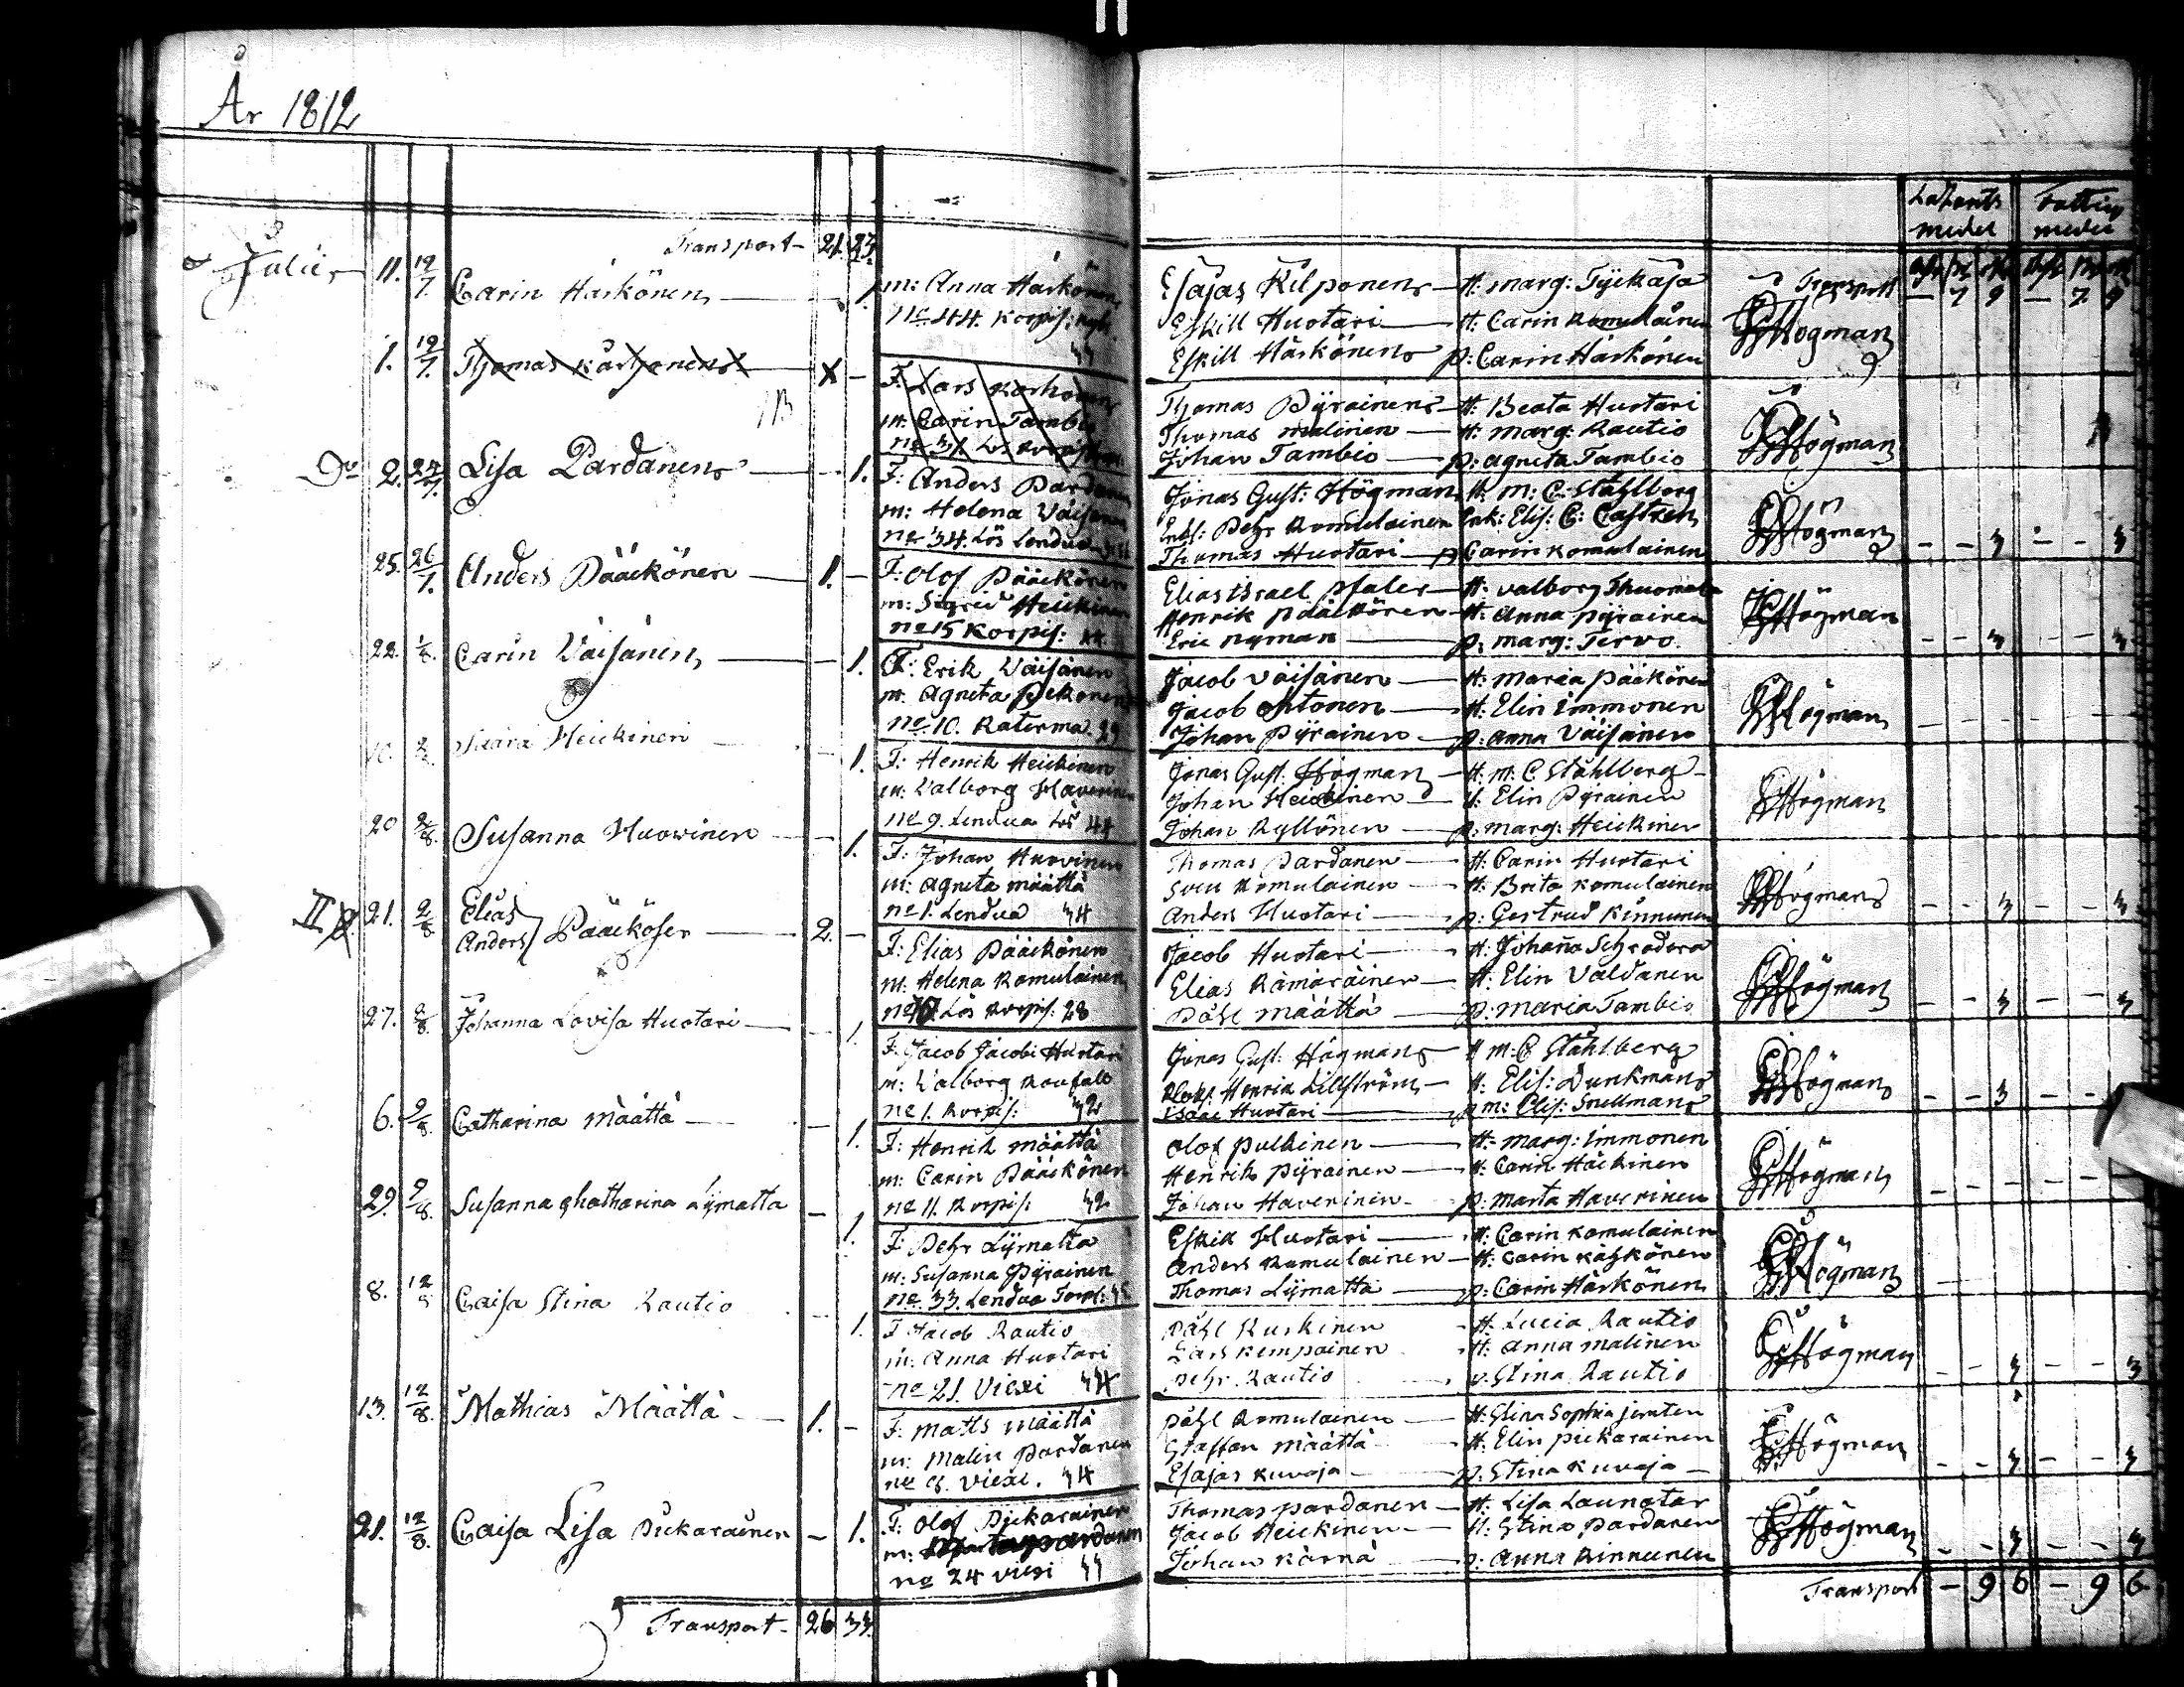 År 1812
Lasarets medel
Fattig medel
Transport - 21. 23.
Julii 11. 12/7. Carin Härkönen 1.
m: Anna Härkönen
No 44. Korpis:
Esajas Kilponen H: marg: Tyikäjä
Eskill Huotari H: Carin Komulainen
Eskill Härkönen p: Carin Härkönen
Transport - 7 9 - 7 9
Högman
1. 12/7. Thomas Karhonen
F: Lars Karhonen
m: Carin Tambio
no 31.
Thomas Pyrainen H: Beata Huotari
Thomas Malinen H: marg: Rautio
Johan Tambio p: agneta Tambio
Högman
Do 2. 24/7. Lisa Pardanen 1.
F: Anders Pardanen
m: Helena Väisänen
no 34. Lös Lendua
Jonas Gust: Högman H: M: C: Ståhlberg
Pehr Komulainen Enk: Elis: C: Castren
Thomas Huotari p Carin Komulainen
Högman - - 3 - - 3
25. 26/7. Anders Pääkönen 1. -
F: Olof Pääckönen
m: Sigrid Heickinen
no 15 Korpis: 44
Elias Israel Pfaler H: valborg
Henrik pääckönen H: Anna pyrainen
Eric nyman p: marg: Tervo
Högman - - 3 - - 3
22. 1/8. Carin Väisänen - 1.
F: Erik Väisänen
m: Agneta Pekonen
no 10. Katerma 29
Jacob väisänen H: maria pääkönen
Jacob ohtonen H: Elin immonen
Johan Pyrainen p: anna Väisänen
Högman - - - - - -
10. 2/8 Heickinen - 1.
F: Henrik Heickinen
m: Valborg Haverinen
no 9. Lendua Lös 44
Jonas Gust. Högman H: m: C. Ståhlberg
Johan Heickinen H: Elin Pyrainen
Johan Kyllönen p: marg: Heickinen
Högman
20 2/8. Susanna Huowinen - 1.
F: Johan Huovinen
m: Agneta määttä
no 1. Lendua 34
Thomas Pardanen H: Carin Huotari
Sven Komulainen H: Brita komulainen
Anders Huotari p: Gertrud Kinnunen
Högman - - 3 - - 3
II 21. 2/8 Elias
Anders Pääköset 2. -
F: Elias Pääckönen
m: Helena Komulainen
Lös Korpis: 28
Jacob Huotari H: Johanna Schrodera
Elias Kämäräinen H: Elin Väldänen
Påhl määttä p: maria Tambio
Högman - - 3 - - 3
27. 2/8. Johanna Lovisa Huotari - 1.
F: Jacob Jacobi Huotari
m: Valborg
no 1. Korpis: 32
Jonas Gust. Högman H m: C Ståhlberg
Henrik Lillström H: Elis: Dunkman
isaac Huotari p m: Elis: Snellman
Högman - - 3 - -
6. 9/8. Catharina Määttä - 1.
F: Henrik määttä
m: Carin Pääckönen
no 11. Korpis: 32
Olof pulkinen H: marg: immonen
Henrik pyrainen H: Carin Häckinen
Johan Haverinen p: marta Haverinen
Högman - - - - - -
29. 9/8. Susanna Chatharina Lymatta - 1.
F: Pehr Lymatta
m: Susanna Pyrainen
no 33. Lendua
Eskil Huotari H: Carin Komulainen
Anders Komulainen H: Carin käskönen
Thomas Lymatta p: Carin Härkönen
Högman -
8. 12/8 Caisa Stina Rautio - 1.
F Jacob Rautio
m: Anna Huotari
no 21. Viexi 34
Påhl Kuskinen H: Lucia Rautio
Lars kempainen H: Anna malinen
Pehr Rautio p. Stina Rautio
Högman - - 3 - - 3
13. 12/8. Mathias Määttä 1. -
F: Matts määttä
m: Malin Pardanen
no 8. Viexi. 34
Påhl Komulainen H: Stina Sophia
Staffan määttä H: Elin pickarainen
Esajas kuvaja p: Stina kuvaja
Högman - - 3 - - 3
21. 12/8. Caisa Lisa Pickarainen - 1.
F: Olof Pickarainen
m: pardanen
no 24 viexi 44
Thomas pardanen H: Lisa Launatar
Jacob Heickinen H: Stina Pardanen
Johan kärnä p: Anna Kinnunen
Högman - - 3 - - 3
Transport - 26 33.
Transport - 9 6 - 9 6